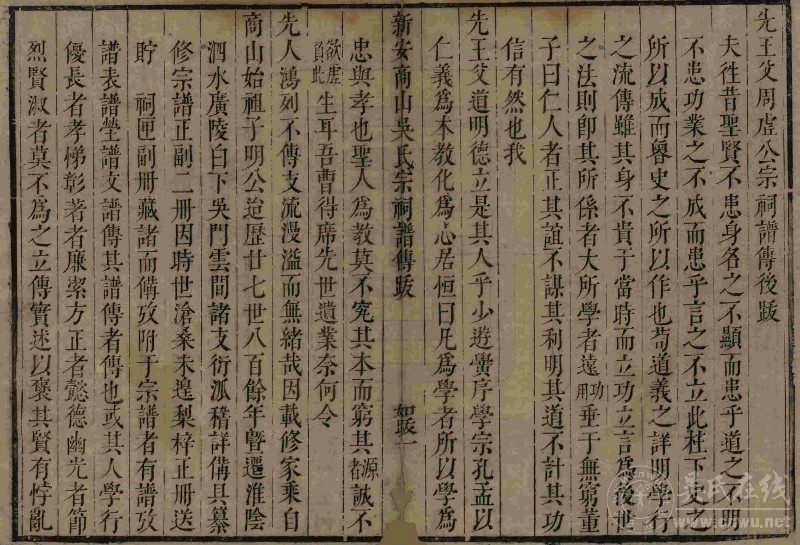 先王父周虛公宗祠譜傳後跋
夫徃昔聖賢不患身名之不顯而患乎道之不明
不患功業之不成而患乎言之不立此柱下文之
所以成而魯史之所以作也苟道義之詳明學行
之流傳雖其身不貴于當時而立功立言為後世
之法則卽其所係者大所學者遠功用垂于無窮董
子曰仁人者正其誼不謀其利明其道不計其功
信有然也我
先王父道明德立是其人乎少遊黌序學宗孔孟以
仁義為本教化為心居恒曰凡為學者所以學為
新安商山吳氏宗祠譜傳跋 如跋一
忠與孝也聖人為教莫不究其本而窮其源者誠不
欲虛負此生耳吾曹得席先世遺業奈何令
先人鴻列不傳支流漫溢而無緒哉因載修家乘自
商山始祖子明公迨歷廿七世八百餘年暨遷淮陰
泗水廣陵白下吳門雲間諸支衍派稽詳備具纂
修宗譜正副二冊因時世滄桑未遑梨梓正冊送
貯 祠匣副冊藏諸而備攷附于宗譜者有譜攷
譜表譜瑩譜文譜傳其譜傳者傳也或其人學行
優長者孝悌彰著者廉潔方正者懿德幽光者節
烈賢淑者莫不為之立傳實述以褒其賢有悖亂
吳氏在线
cnwu.net